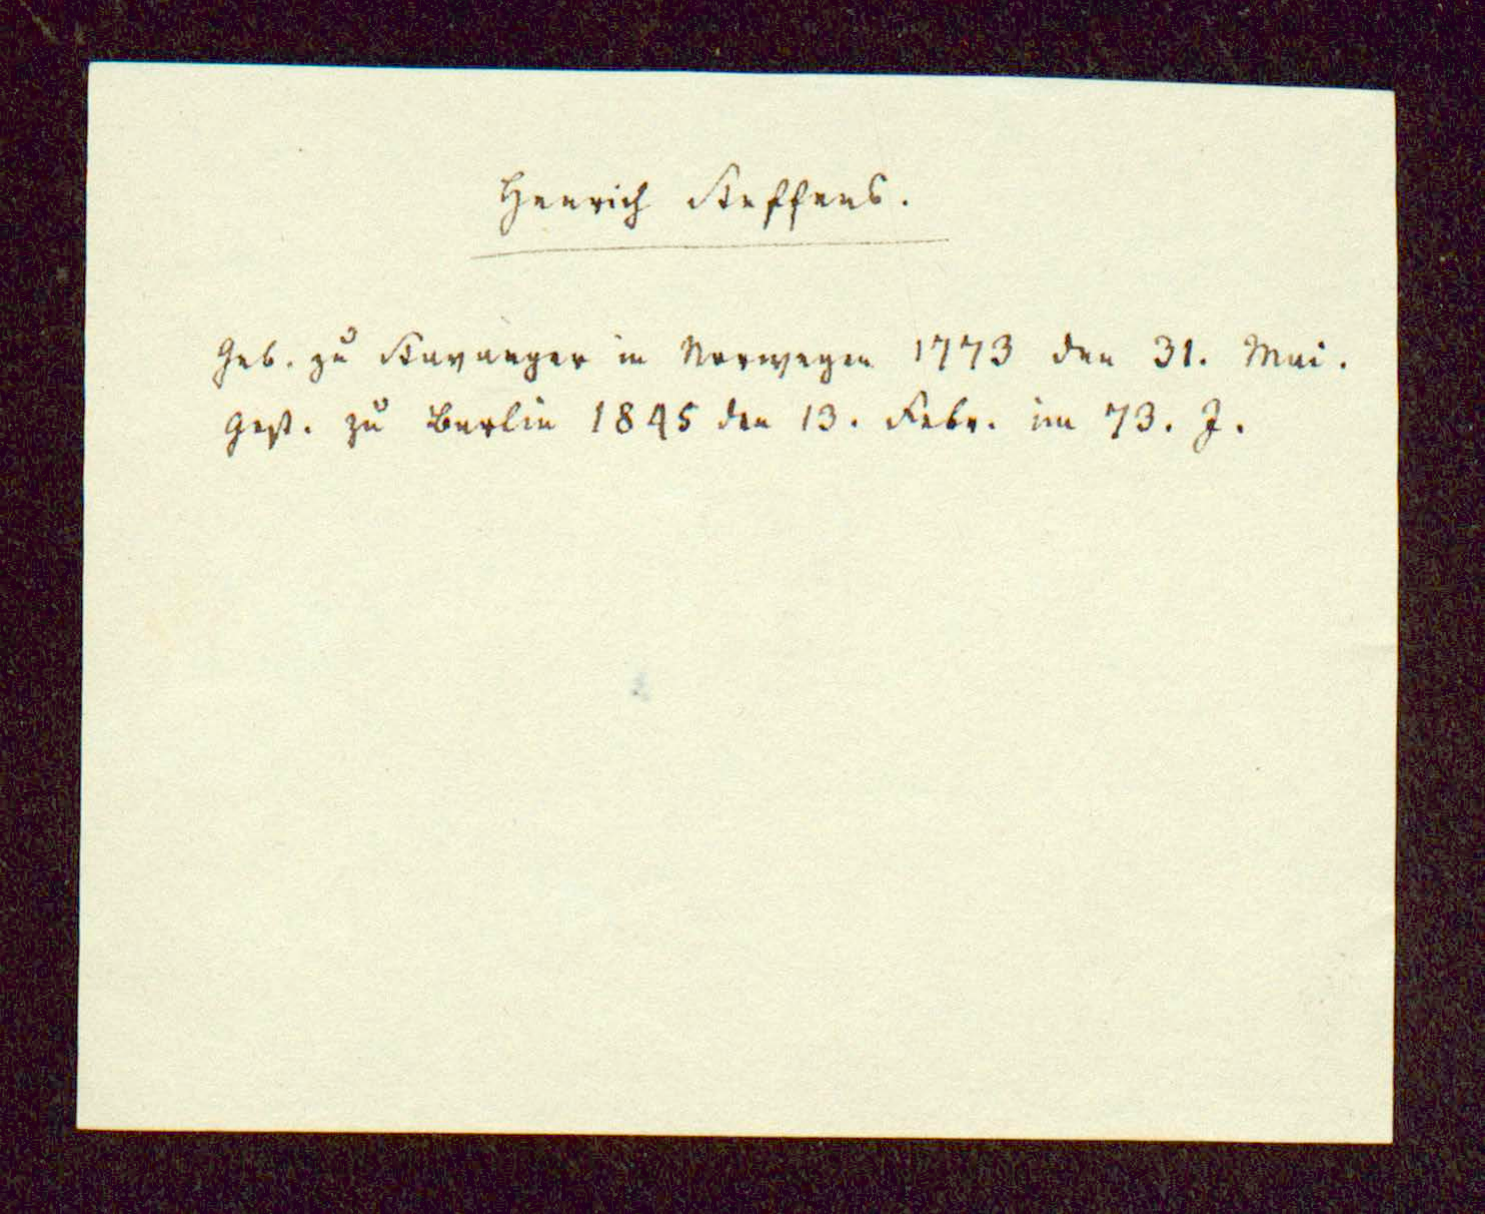 Henrich Steffens.
Geb. zu Stavanger in Norwegen 1773 den 31. Mai.
Gest. zu Berlin 1845 den 13. Febr. im 73. J.